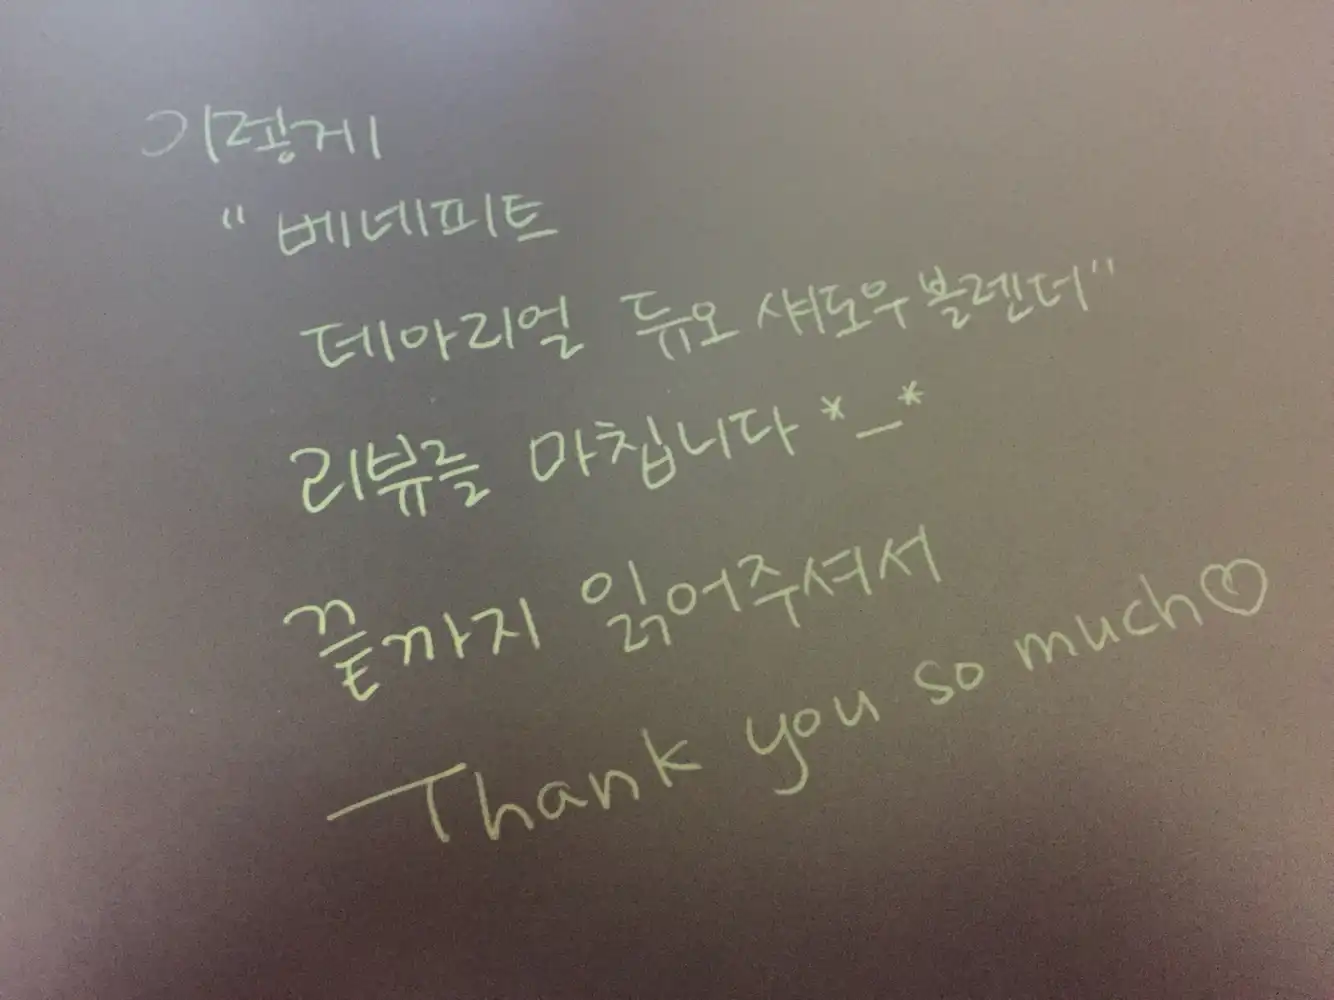 이렇게
"베네피트
데아리얼 듀오 섀도우 블렌더"
리뷰를 마칩니다 *_*
끝까지 읽어주셔서
Thank you so much♡